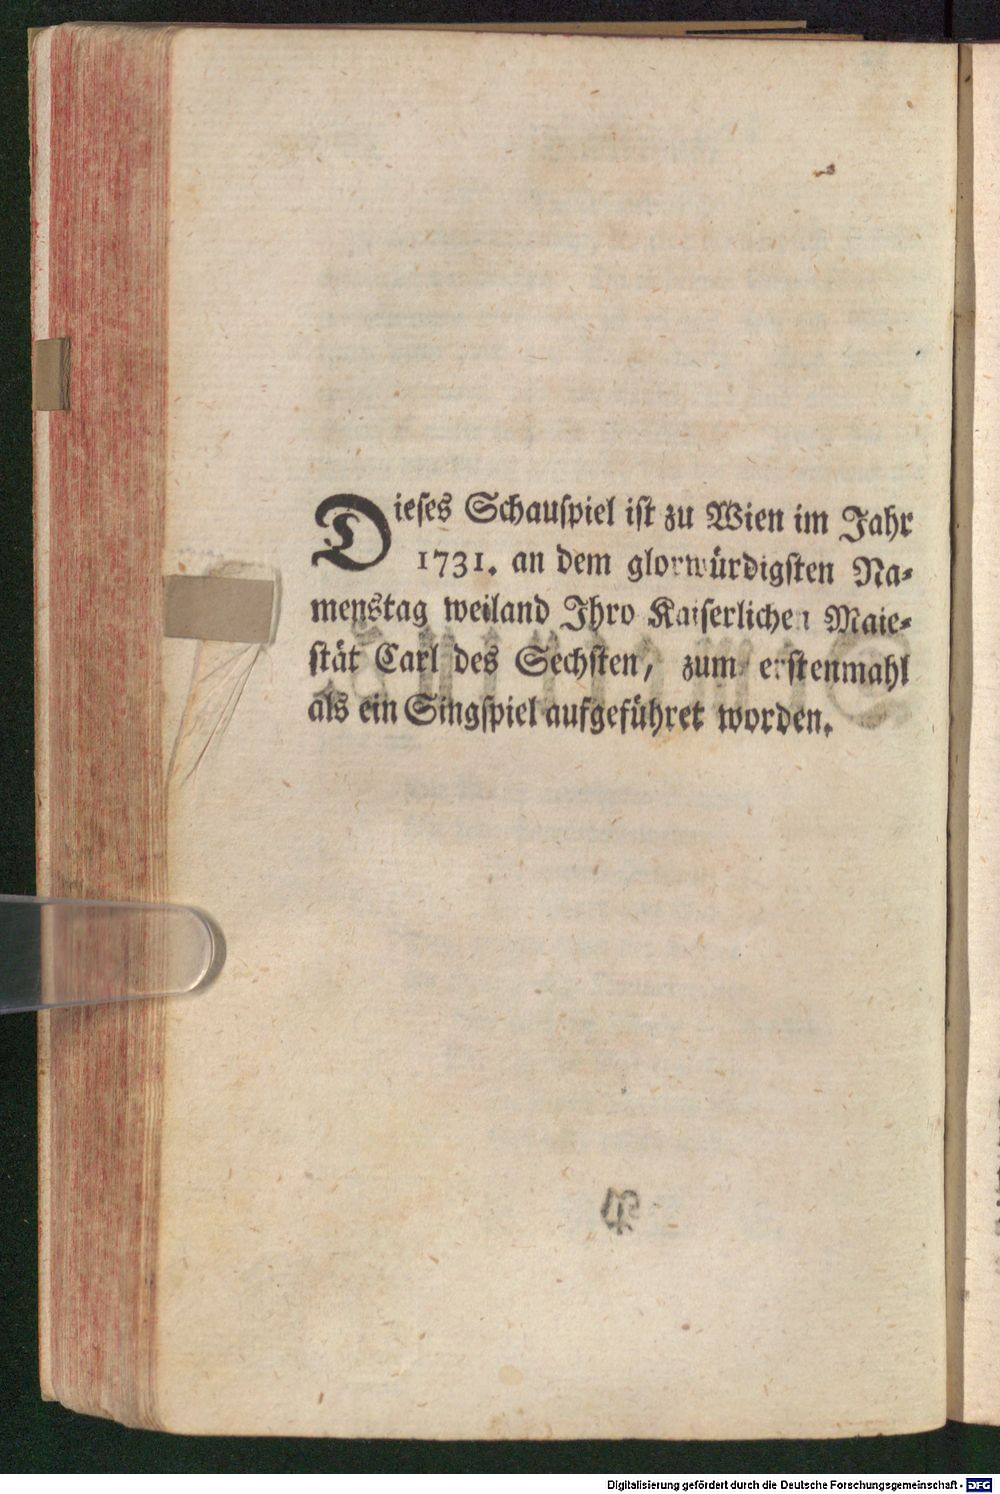 Dieses Schauspiel ist zu Wien im Jahr
1731. an dem glorwürdigsten Na-
menstag weiland Ihro Kaiserlichen Maie-
stät Carl des Sechsten, zum erstenmahl
als ein Singspiel aufgeführet worden.
Digitalisierung gefördert durch die Deutsche Forschungsgemeinschaft - DFG